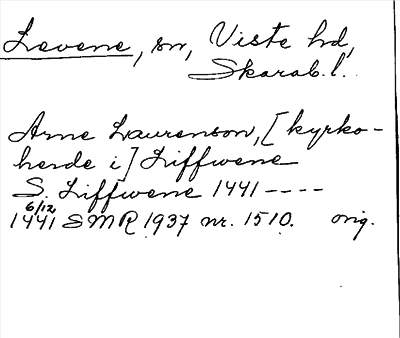 Levene, sn, Viste hd,
Skarab.l.
Arne Laurenson, [kyrko-
herde i] Liffwene
S. Liffwene 1441 ----
6/12
1441 SMR 1937 nr. 1510. orig.